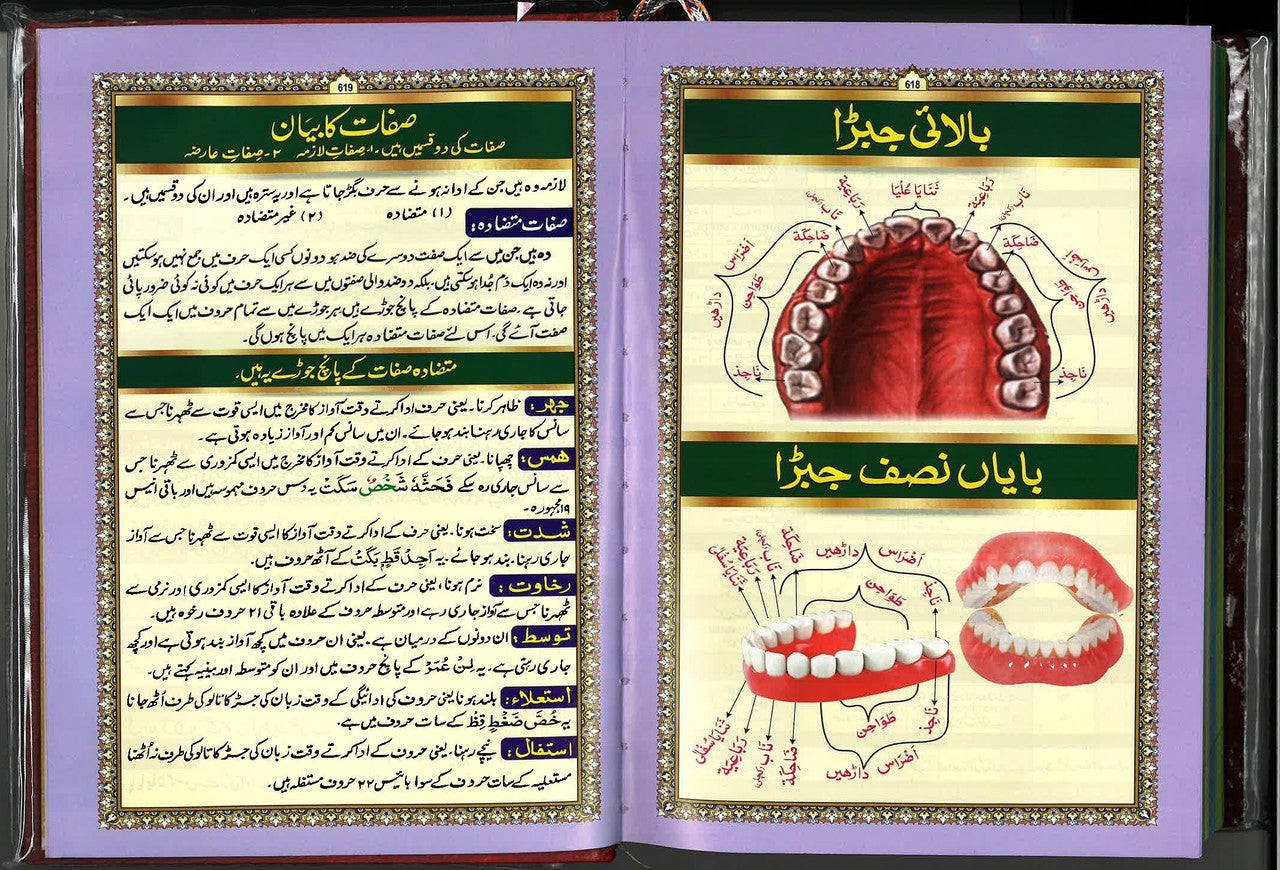 618
بالائی جبڑا
ثَنَايَا عُلْيَا
رَبَاعِيَة
رَبَاعِيَة
نَاب
نَاب
ضَاحِكَة
ضَاحِكَة
اَضْرَاس
اَضْرَاس
طَوَاحِن
طَوَاحِن
داڑھیں
داڑھیں
نَاجِذ
نَاجِذ
بایاں نصف جبڑا
ضَاحِكَة
نَاب
رَبَاعِيَة
ثَنَايَا سُفْلٰی
اَضْرَاس داڑھیں
طَوَاحِن
نَاجِذ
نَاجِذ
طَوَاحِن
اَضْرَاس داڑھیں
ثَنَايَا سُفْلٰی
رَبَاعِيَة
نَاب
ضَاحِكَة
619
صفات کا بیان
صفات کی دو قسمیں ہیں ۔ ۱۔ صفاتِ لازمہ ۲۔ صفاتِ عارضہ
لازمہ وہ ہیں جن کے ادا نہ ہونے سے حرف بگڑ جاتا ہے اور یہ سترہ ہیں اور ان کی دو قسمیں ہیں ۔
(۱) متضادہ (۲) غیر متضادہ
صفات متضادہ:
وہ ہیں جن میں سے ایک صفت دوسرے کی ضد ہو دونوں کسی ایک حرف میں جمع نہیں ہو سکتیں
اور نہ وہ ایک دَم جُدا ہو سکتی ہیں۔ بلکہ دو ضد والی صفتوں میں سے ہر ایک حرف میں کوئی نہ کوئی ضرور پائی
جاتی ہے ۔ صفات متضادہ کے پانچ جوڑے ہیں۔ ہر جوڑے میں سے تمام حروف میں ایک ایک
صفت آئے گی۔ اس لئے صفات متضادہ ہر ایک میں پانچ ہوں گی۔
متضادہ صفات کے پانچ جوڑے یہ ہیں۔
جہر: ظاہر کرنا۔ یعنی حرف ادا کرتے وقت آواز کا مخرج میں ایسی قوت سے ٹھہرنا جس سے
سانس کا جاری رہنا بند ہو جائے۔ ان میں سانس کم اور آواز زیادہ ہوتی ہے ۔
ھمس: چھپانا۔ یعنی حرف کے ادا کرتے وقت آواز کا مخرج میں ایسی کمزوری سے ٹھہرنا جس
سے سانس جاری رہ سکے فَحَثَّهٗ شَخْصٌ سَكَتْ یہ دس حروف مہموسہ ہیں اور باقی انیس
۱۹ مجہورہ ۔
شدت: سخت ہونا۔ یعنی حرف کے ادا کرتے وقت آواز کا ایسی قوت سے ٹھہرنا جس سے آواز
جاری رہنا۔ بند ہو جائے ۔ یہ اَجِدُ قَطٍ بَكَتْ کے آٹھ حروف ہیں۔
رخاوت: نرم ہونا، یعنی حرف کے ادا کرتے وقت آواز کا ایسی کمزوری اور نرمی سے
ٹھہرنا جس سے آواز جاری رہے اور متوسطہ حروف کے علاوہ باقی ۲۱ حروف رخوہ ہیں۔
توسط: ان دونوں کے درمیان ہے۔ یعنی ان حروف میں کچھ آواز بند ہوتی ہے اور کچھ
جاری رہتی ہے ۔ یہ لِنْ عُمَرْ کے پانچ حروف میں اور ان کو متوسطہ اور بینیہ کہتے ہیں۔
استعلاء: بلند ہونا یعنی حروف کی ادائیگی کے وقت زبان کی جڑ کا تالو کی طرف اُٹھ جانا
یہ خُصَّ ضَغْطٍ قِظْ کے سات حروف میں ہے ۔
استفال: نیچے رہنا۔ یعنی حروف کے ادا کرتے وقت زبان کی جڑ کا تالو کی طرف نہ اُٹھنا
مستعلیہ کے سات حروف کے سوا بائیس ۲۲ حروف مستفلہ ہیں۔